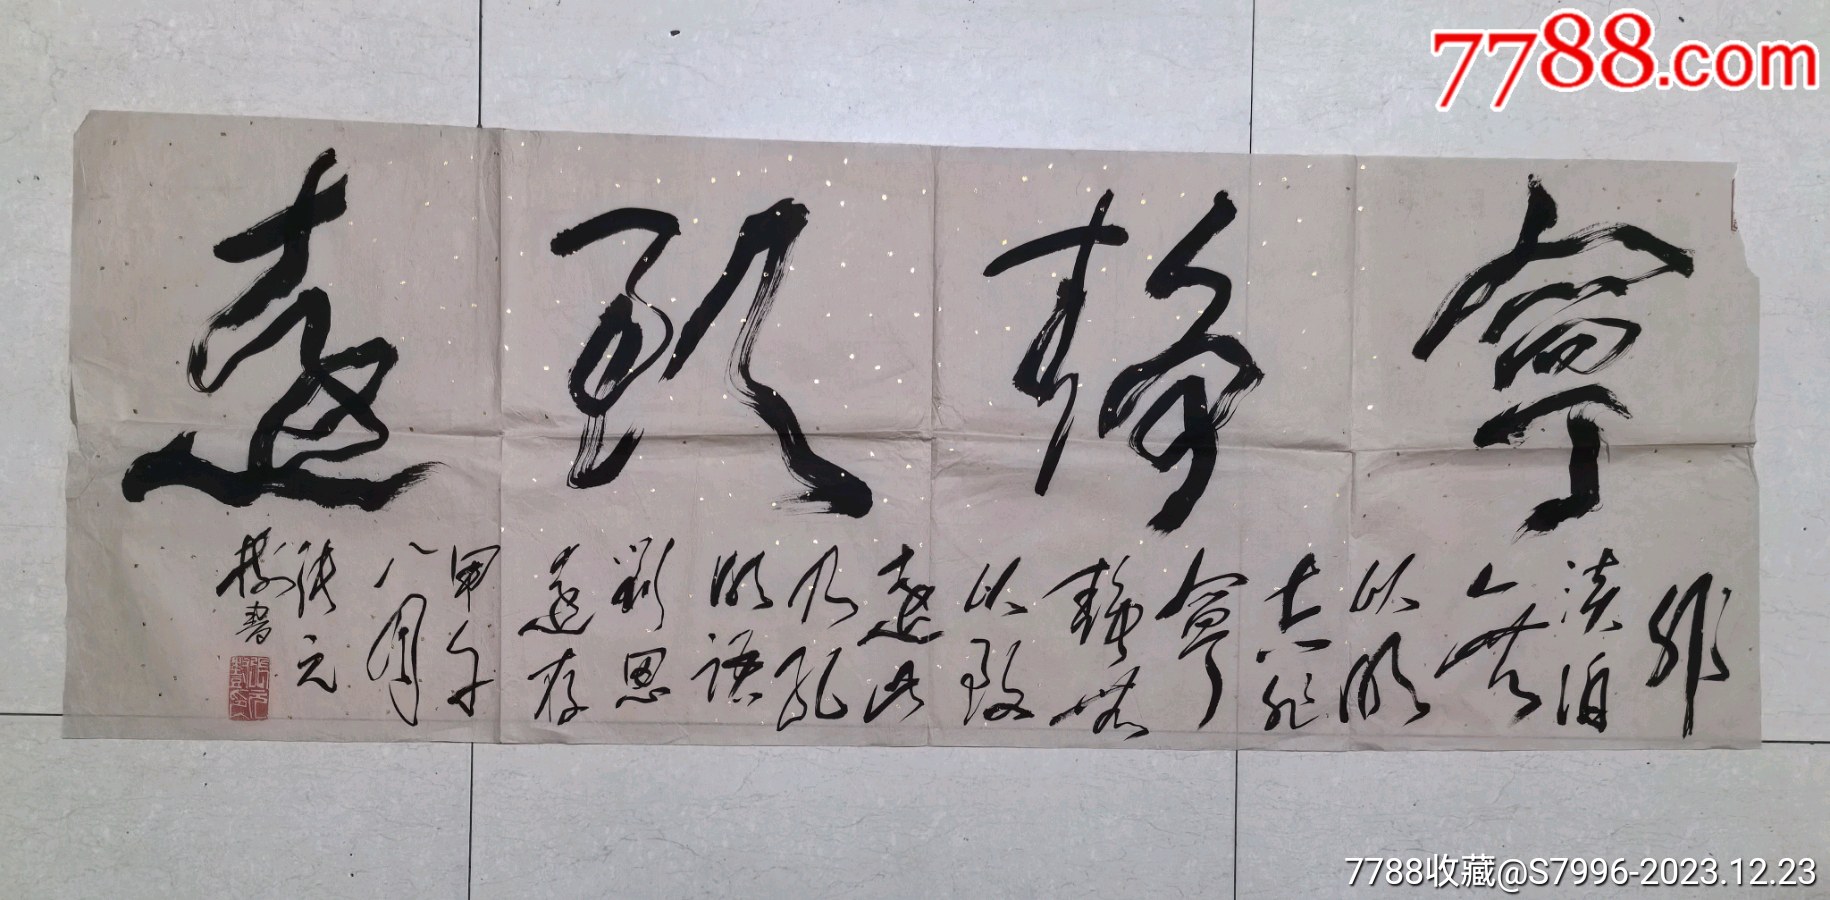 7788.com
寧靜致遠
非
淡泊
無
以明
志非
寧
靜無
以致
遠此
乃孔
明語
劉思
遠存
甲午
八月
張元
樹書
7788收藏@S7996-2023.12.23